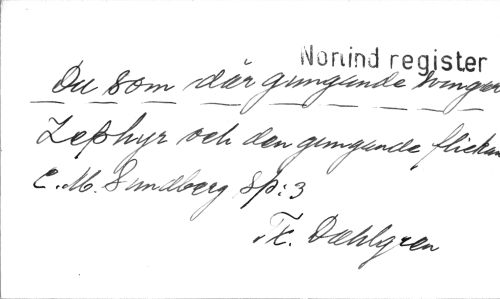 Nonind register
Du som där gungande svingar
Zephyr och den gungande flickan
C. M. Sundberg Sp: 3
Fr. Dahlgren